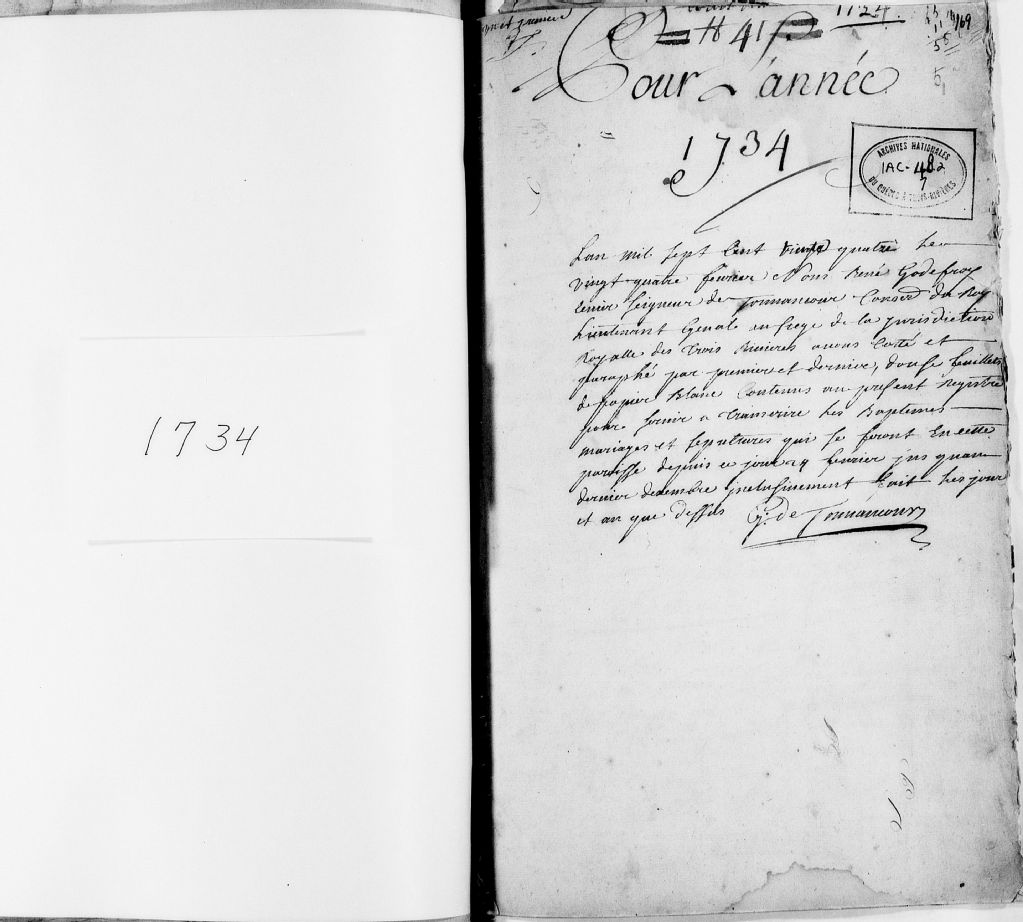 1734
1724
H 41
Pour L'année
1734
ARCHIVES NATIONALES
1AC-
DU QUÉBEC À TROIS-RIVIÈRES
Lan mil sept Cent vingt quatre Le
vingt quatre fevrier Nous René Godefroy
seigneur de Tonnancour Conser du Roy
Lieutenant Genale au siege de la jurisdiction
Royalle des trois Rivieres avons Cotté et
paraphé par premier et dernier, douse feuillets
de papier Blanc Contenus au present Registre
pour servir a transcrire Les Baptemes
mariages et sepultures qui se feront En cette
paroisse depuis ce jour 24 fevrier jus quau
dernier decembre jnclusivement fait Les jour
et an que dessus G. de Tonnancour